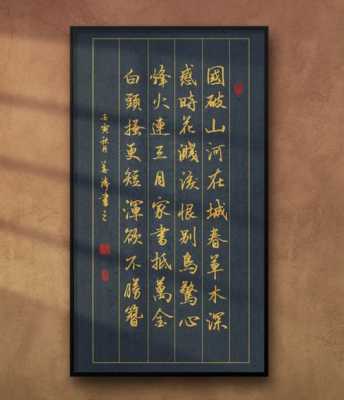 國破山河在城春草木深
感時花濺淚恨別鳥驚心
烽火連三月家書抵萬金
白頭搔更短渾欲不勝簪
壬寅秋月 書之